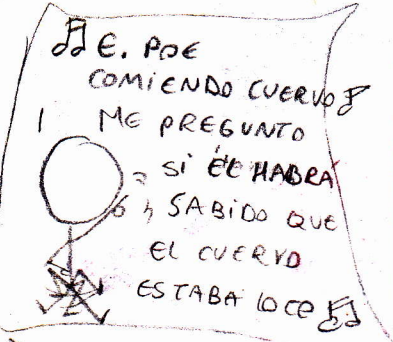 E. POE
COMIENDO CUERVO
ME PREGUNTO
SI ÉL HABRÁ
SABIDO QUE
EL CUERVO
ESTABA LOCO